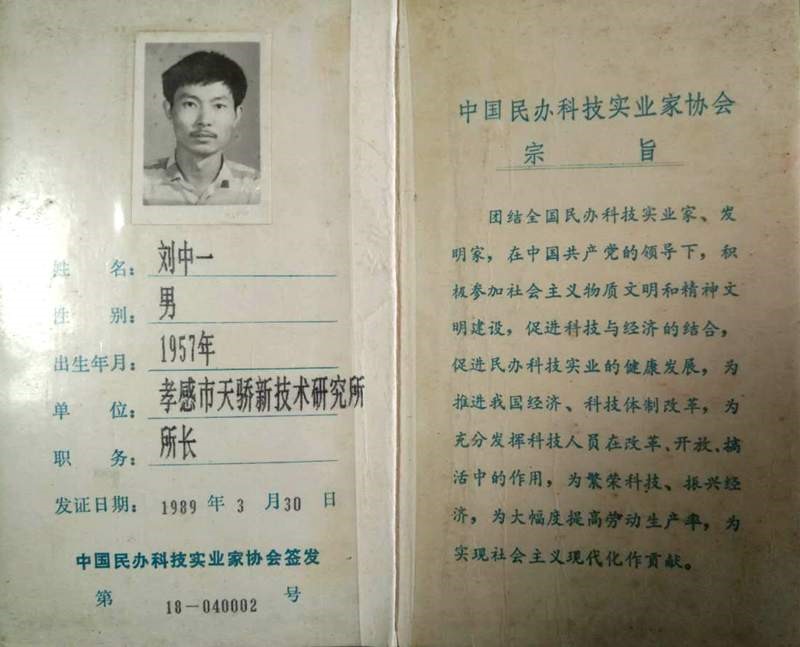 姓 名: 刘中一
性 别: 男
出生年月: 1957年
单 位: 孝感市天骄新技术研究所
职 务: 所长
发证日期: 1989 年 3 月 30 日
中国民办科技实业家协会签发
第 18-040002 号
中国民办科技实业家协会
宗 旨
团结全国民办科技实业家、发
明家，在中国共产党的领导下，积
极参加社会主义物质文明和精神文
明建设，促进科技与经济的结合，
促进民办科技实业的健康发展，为
推进我国经济、科技体制改革，为
充分发挥科技人员在改革、开放、搞
活中的作用，为繁荣科技、振兴经
济，为大幅度提高劳动生产率，为
实现社会主义现代化作贡献。